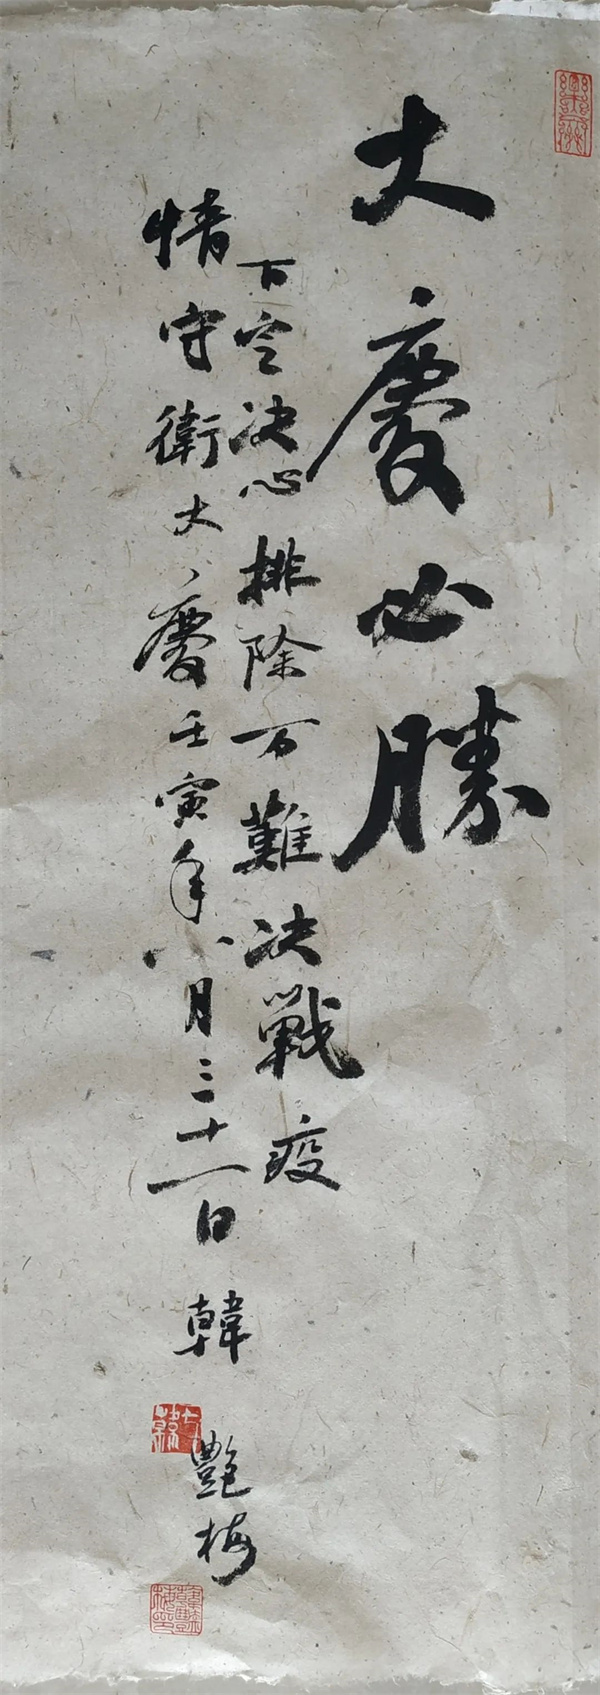 大慶必勝
下定决心排除万難决戰疫
情守衛大慶壬寅年八月三十一日韓艷梅